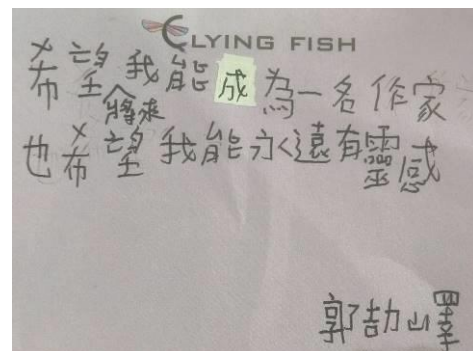 FLYING FISH
希望將來我能成為一名作家
也希望我能永遠有靈感
郭劼嶧